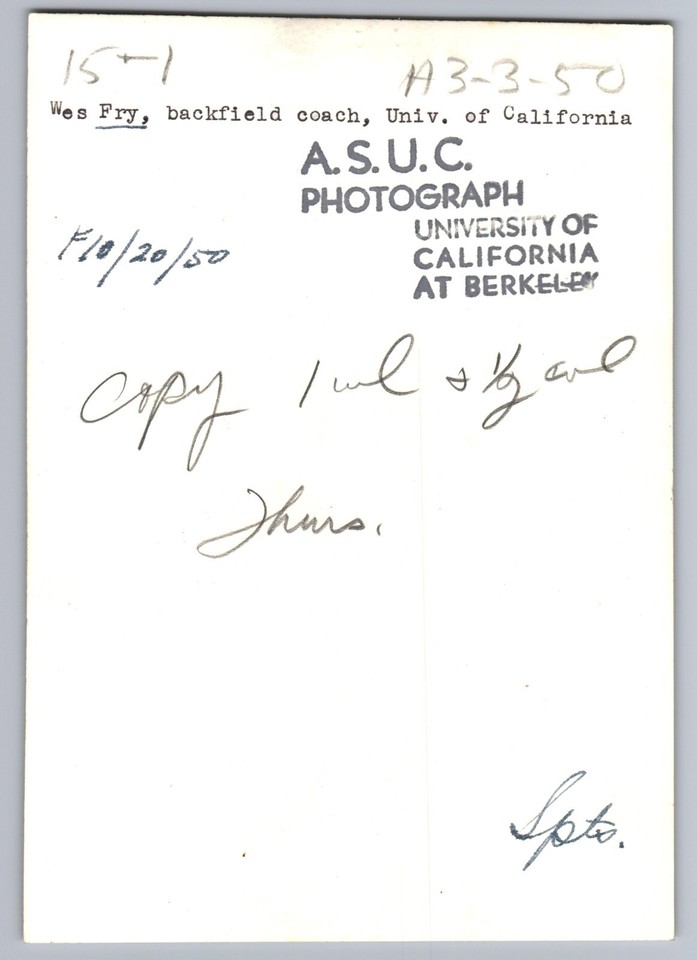 15-1 A3-3-50
Wes Fry, backfield coach, Univ. of California
A.S.U.C.
PHOTOGRAPH
UNIVERSITY OF
CALIFORNIA
AT BERKELEY
F10/20/50
Copy 1 col & 1/2 col
Thurs.
Spts.